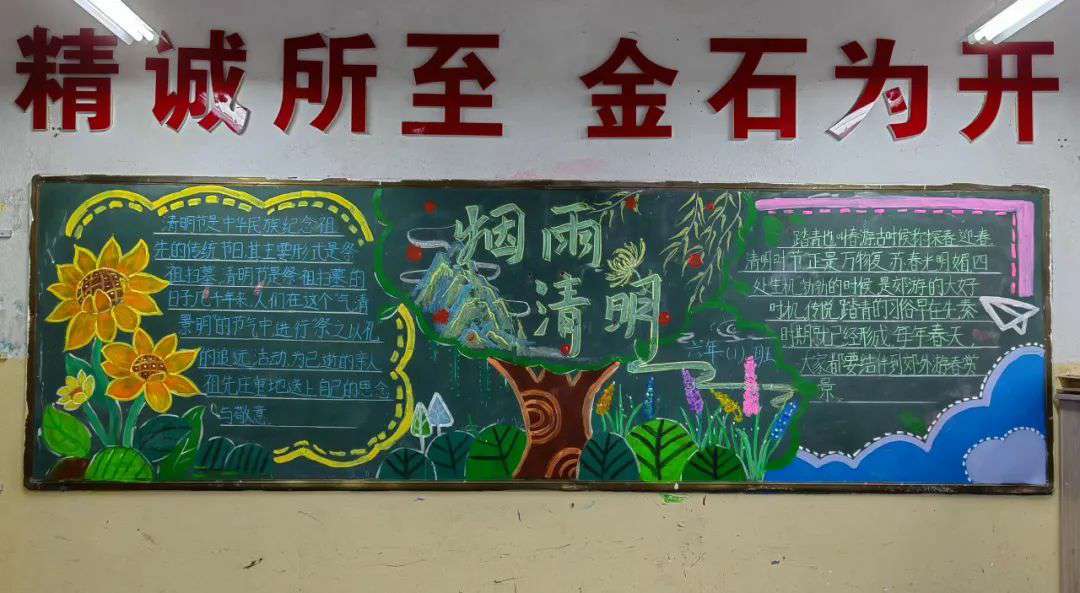 精诚所至 金石为开
清明节是中华民族纪念祖
先的传统节日其主要形式是祭
祖扫墓。清明节是祭祖扫墓的
日子几千年来人们在这个"气清
景明"的节气中进行祭之以礼
的追远活动为己逝的亲人
祖先庄重地送上自己的思念
与敬意
烟雨
清明
六年(1)班
踏青也叫春游古时候称探春、迎春
清明时节正是万物复苏春光明媚四
处生机勃勃的时候是郊游的大好
时机传说踏青的习俗早在先秦
时期就已经形成每年春天
大家都要结伴到郊外游春赏
景